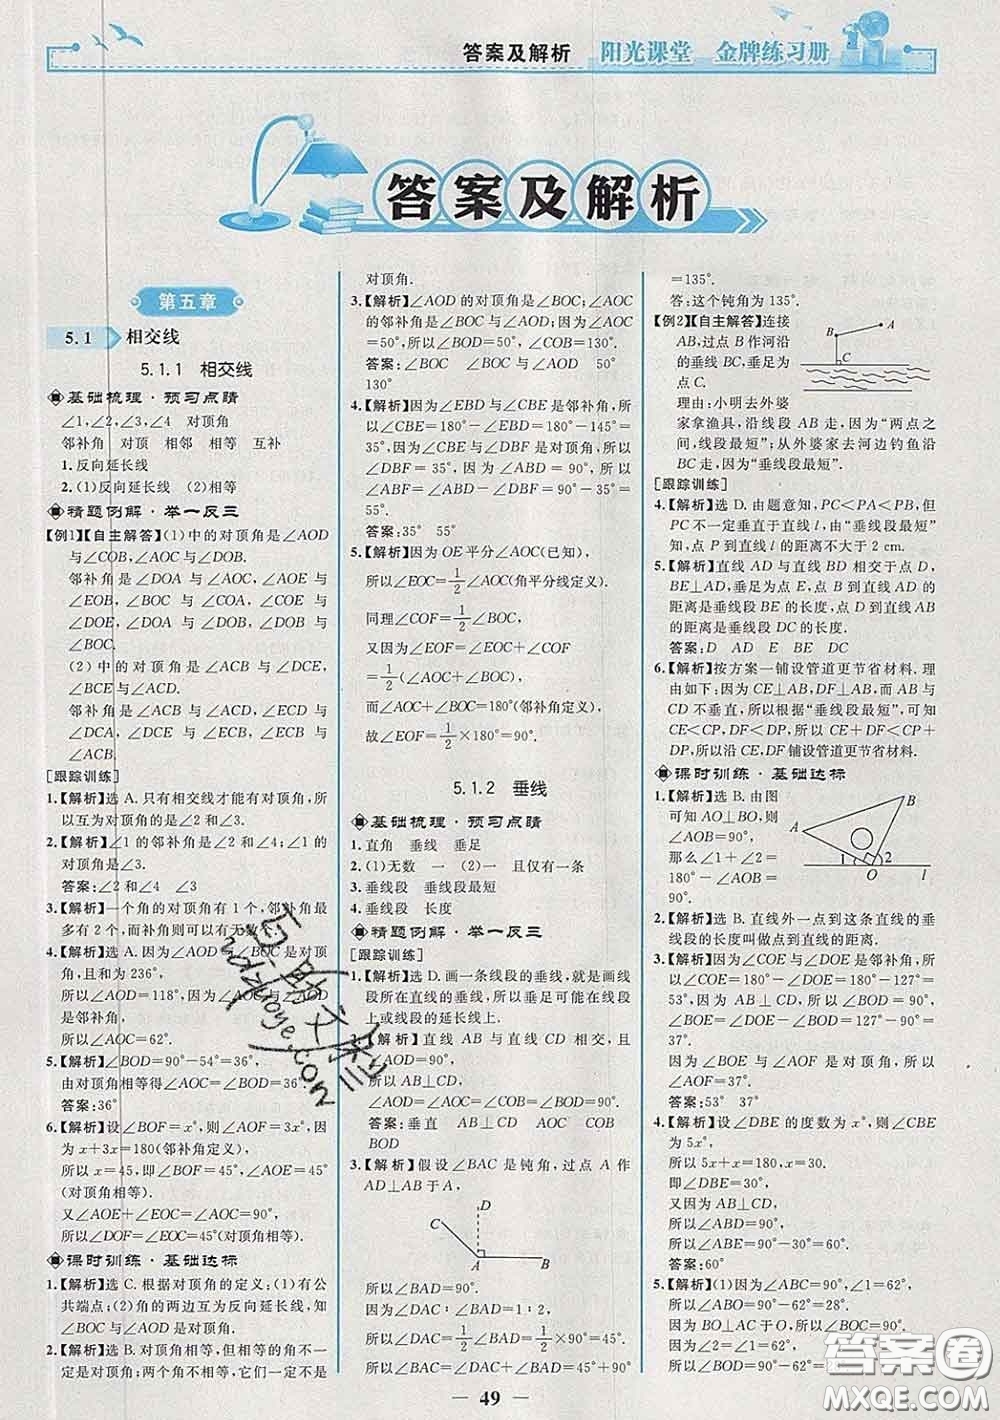 答案及解析 阳光课堂 金牌练习册
答案及解析
第五章
5.1 相交线
5.1.1 相交线
基础梳理·预习点睛
∠1,∠2,∠3,∠4 对顶角
邻补角 对顶 相邻 相等 互补
1.反向延长线
2.(1)反向延长线 (2)相等
精题例解·举一反三
【例1】【自主解答】(1)中的对顶角是∠AOD
与∠COB,∠AOC与∠DOB.
邻补角是∠DOA与∠AOC,∠AOE与
∠EOB,∠BOC与∠COA,∠COE与
∠DOE,∠DOA与∠DOB,∠DOB与
∠BOC.
(2)中的对顶角是∠ACB与∠DCE,
∠BCE与∠ACD.
邻补角是∠ACB与∠ACD,∠ECD与
∠DCA,∠DCE与∠ECB,∠ECB与
∠ACB.
[跟踪训练]
1.【解析】选A.只有相交线才能有对顶角,所
以互为对顶角的是∠2和∠3.
2.【解析】∠1的邻补角是∠2和∠4;∠1的
对顶角是∠3.
答案:∠2和∠4 ∠3
3.【解析】一个角的对顶角有1个,邻补角最
多有2个,而补角则可以有无数个.
4.【解析】因为∠AOD与∠BOC是对顶
角,且和为236°,
所以∠AOD=118°,因为∠AOC与∠AOD
是邻补角,
所以∠AOC=62°.
5.【解析】∠BOD=90°-54°=36°,
由对顶角相等得∠AOC=∠BOD=36°.
答案:36°
6.【解析】设∠BOF=x°,则∠AOF=3x°,
因为x+3x=180(邻补角定义),
所以x=45,即∠BOF=45°,所以∠AOE=45°
(对顶角相等).
又∠AOE+∠BOF=∠DOF,
所以∠DOF=∠EOC=45°(对顶角相等).
课时训练·基础达标
1.【解析】选C.根据对顶角的定义;(1)有公
共端点;(2)角的两边互为反向延长线,知
∠BOC与∠AOD是对顶角.
2.【解析】选B.对顶角相等,但相等的角不一
定是对顶角;两个角不相等,它们一定不是
对顶角.
3.【解析】∠AOD的对顶角是∠BOC;∠AOC
的邻补角是∠AOD和∠BOC;因为∠AOC
=50°,所以∠BOD=50°,∠COB=130°.
答案:∠BOC ∠AOD和∠BOC 50°
130°
4.【解析】因为∠EBD与∠CBE是邻补角,所
以∠CBE=180°-∠EBD=180°-145°=
35°,因为∠CBE与∠DBF是对顶角,所以
∠DBF=35°,因为∠ABD=90°,所以
∠ABF=∠ABD-∠DBF=90°-35°=
55°.
答案:35° 55°
5.【解析】因为OE平分∠AOC(已知),
所以∠EOC=1/2∠AOC(角平分线定义).
同理∠COF=1/2∠BOC,
又因为∠EOF=∠EOC+∠COF
=1/2(∠AOC+∠BOC),
而∠AOC+∠BOC=180°(邻补角定义),
故∠EOF=1/2×180°=90°.
5.1.2 垂线
基础梳理·预习点睛
1.直角 垂线 垂足
2.(1)无数 一 (2)一 且仅有一条
3.垂线段 垂线段最短
4.垂线段 长度
精题例解·举一反三
[跟踪训练]
1.【解析】选D.画一条线段的垂线,就是画线
段所在直线的垂线,所以垂足可能在线段
上或线段的延长线上.
【解析】直线AB与直线CD相交,且
∠AOD=90°,
所以AB⊥CD,
∠AOD=∠AOC=∠COB=∠BOD=90°.
答案:垂直 AOD AOC COB
BOD
3.【解析】假设∠BAC是钝角,过点A作
AD⊥AB于A,
C A B
所以∠BAD=90°.
因为∠DAC∶∠BAD=1∶2,
所以∠DAC=1/2∠BAD=1/2×90°=45°.
所以∠BAC=∠BAD+∠DAC=90°+45°
=135°.
答:这个钝角为135°.
【例2】【自主解答】连接
AB,过点B作河沿
的垂线BC,垂足为
点C.
B A C
理由:小明去外婆
家拿渔具,沿线段AB走,因为“两点之
间,线段最短”;从外婆家去河边钓鱼沿
BC走,因为“垂线段最短”.
[跟踪训练]
4.【解析】选D.由题意知,PC<PA<PB,但
PC不一定垂直于直线l,由“垂线段最短”可
知,点P到直线l的距离不大于2 cm.
5.【解析】直线AD与直线BD相交于点D,
BE⊥AD,垂足为点E,点B到直线AD的
距离是线段BE的长度,点D到直线AB的
距离是线段DC的长度.
答案:D AD E BE DC
6.【解析】按方案一铺设管道更节省材料.理
由如下:因为CE⊥AB,DF⊥AB,而AB与
CD不垂直,所以根据“垂线段最短”,可知
CE<CP,DF<DP,所以CE+DF<CP+
DP,所以沿CE,DF铺设管道更节省材料.
课时训练·基础达标
1.【解析】选B.由图
可知AO⊥BO,则
∠AOB=90°,
那么∠1+∠2=
180°-∠AOB
=90°.
A B 1 2 O l
2.【解析】选B.直线外一点到这条直线的垂
线段的长度叫做点到直线的距离.
3.【解析】因为∠COE与∠DOE是邻补角,所
以∠COE=180°-∠DOE=180°-127°=
53°,因为OB⊥CD,所以∠BOD=90°,所以
∠BOE=∠DOE-∠BOD=127°-90°=
37°.
因为∠BOE与∠AOF是对顶角,所以
∠AOF=37°.
答案:53° 37°
4.【解析】设∠DBE的度数为x°,则∠CBE
为5x°,
所以5x+x=180,x=30,
即∠DBE=30°,
又因为AB⊥CD,
所以∠ABD=90°,
所以∠ABE=90°-30°=60°.
答案:60°
5.【解析】(1)因为∠ABC=90°,∠1=62°,
所以∠ABO=90°-62°=28°.
因为BO⊥AC于点O,所以∠AOB=90°,
所以∠2=90°-∠1=90°-62°=28°.
49
答案圈
MXQE.COM